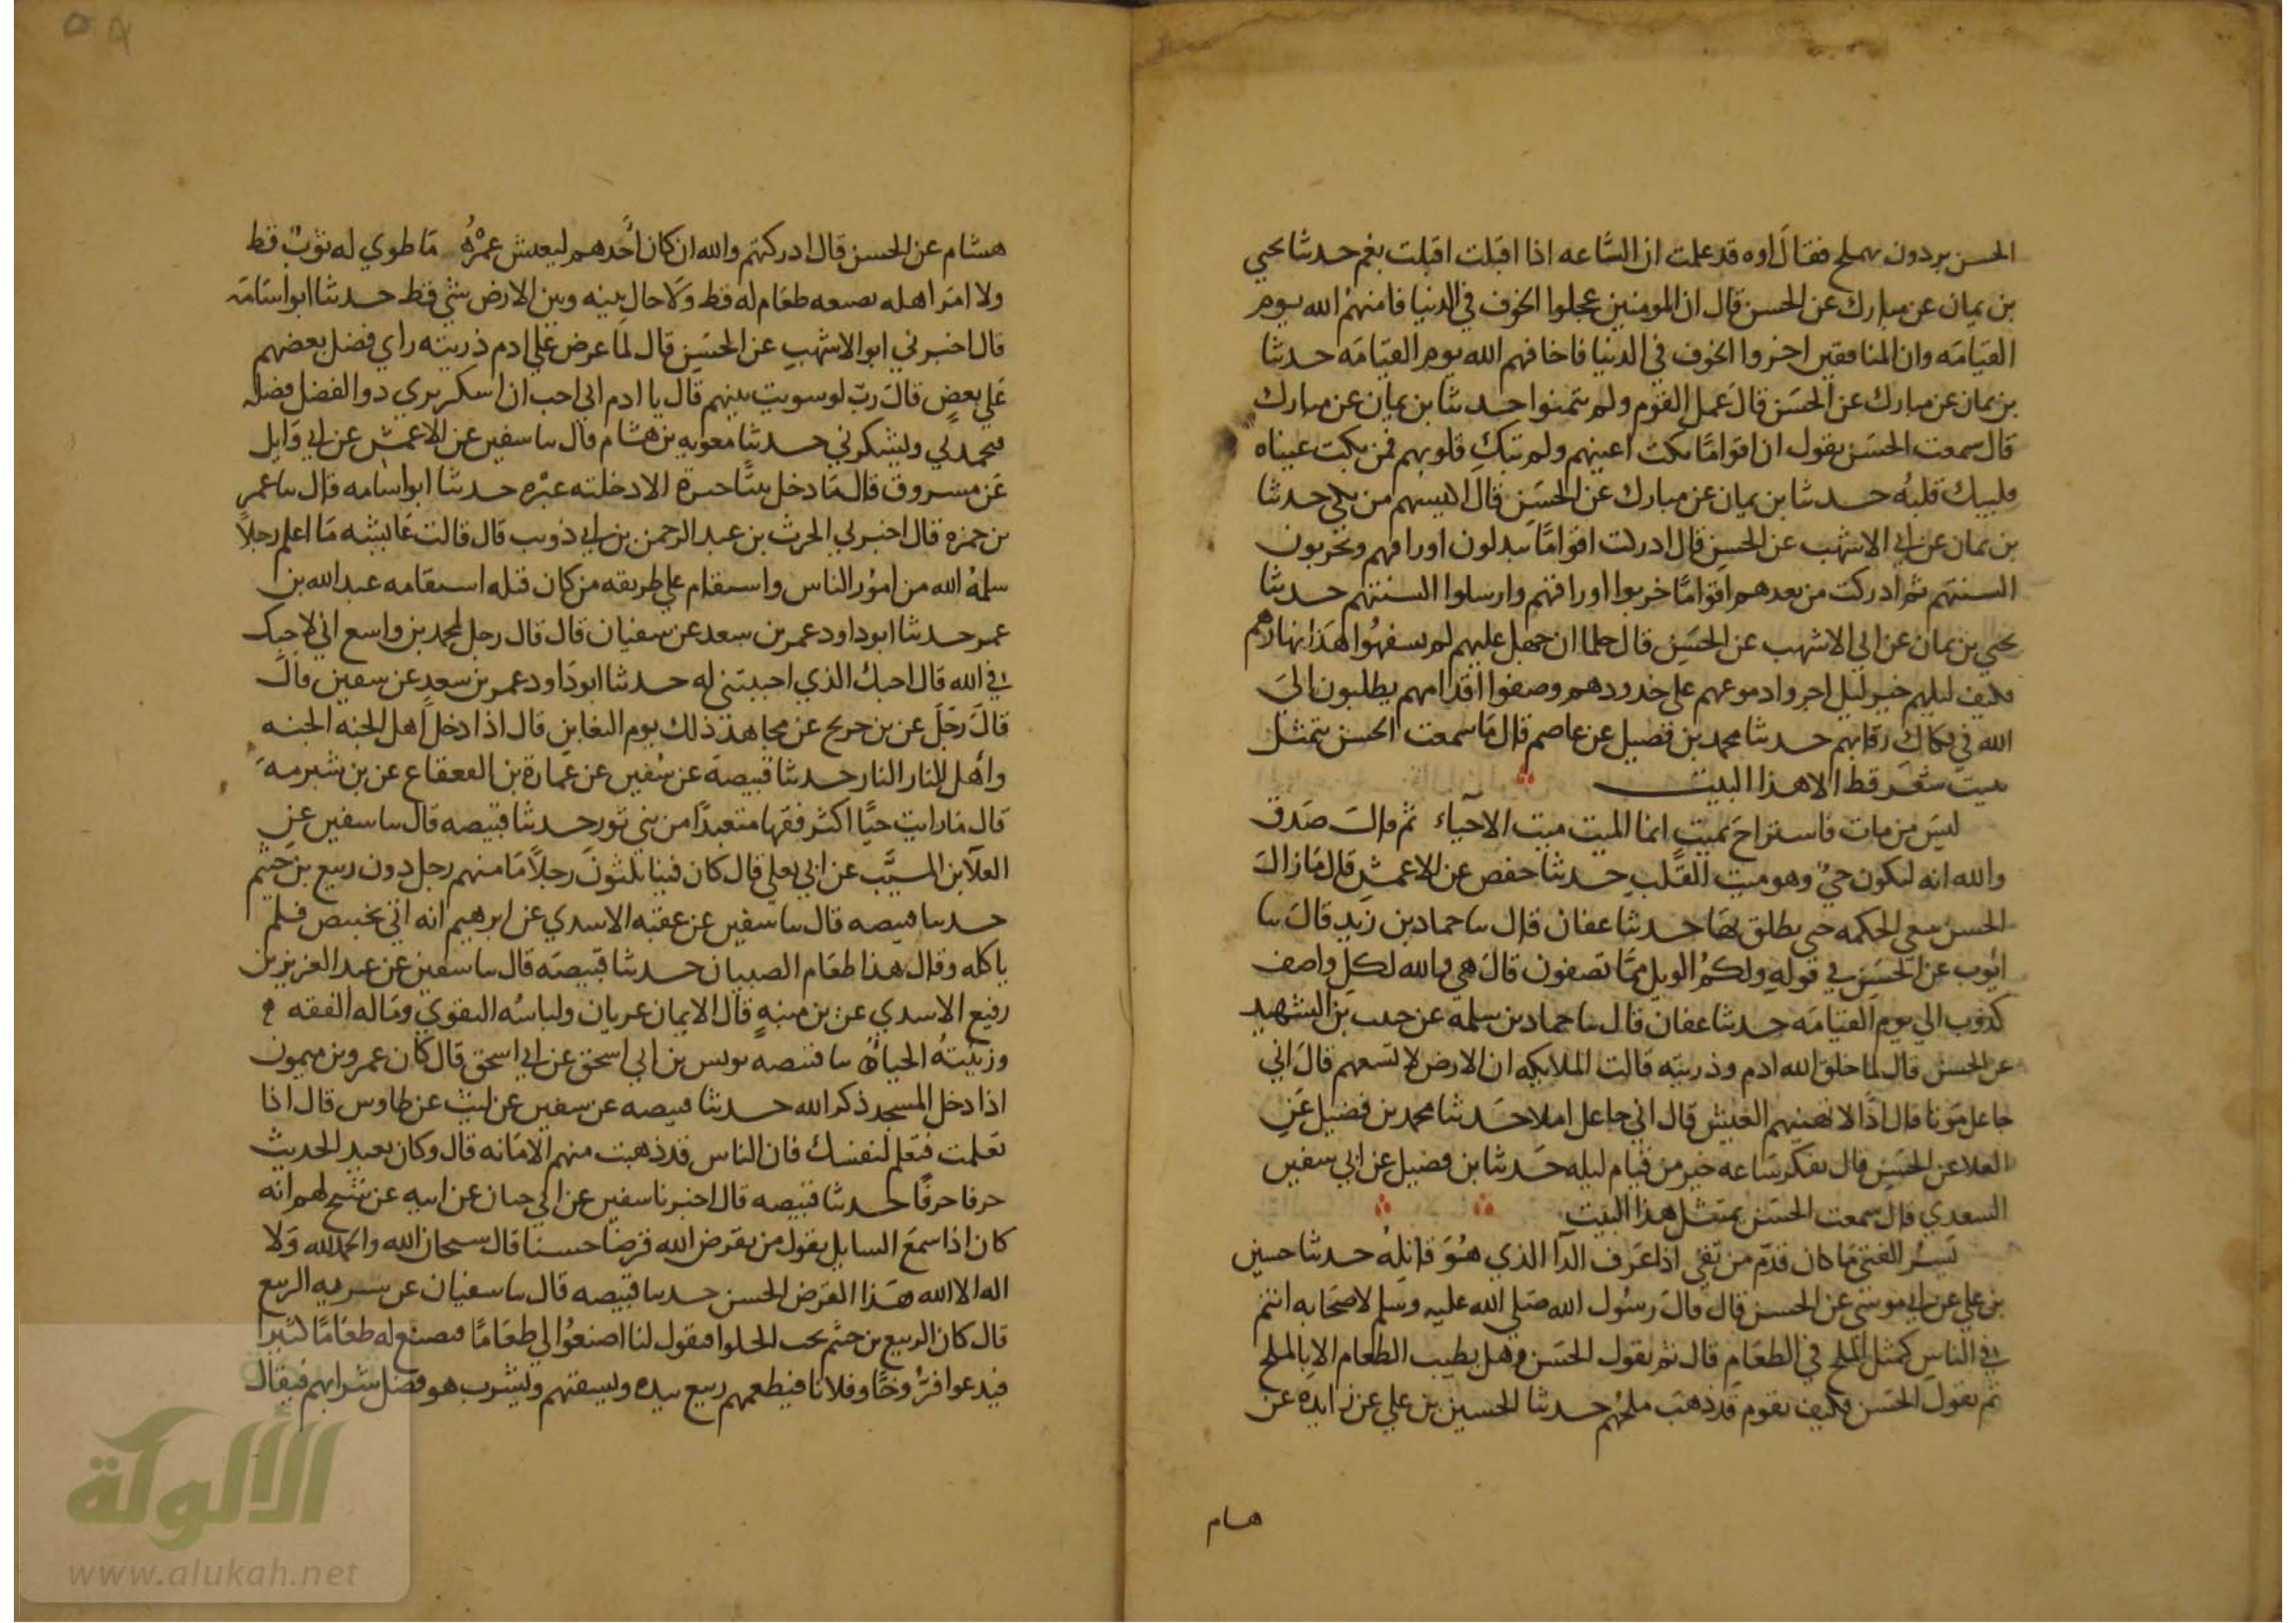 الحسن بردون يهملج فقال اوه قد علمت ان الساعه اذا اقبلت اقبلت بغم حدثنا يحيي
بن يمان عن مبارك عن الحسن قال ان المومنين عجلوا الخوف في الدنيا فامنهم الله يوم
القيامه وان المنافقين اخروا الخوف في الدنيا فاخافهم الله يوم القيامه حدثنا
بن يمان عن مبارك عن الحسن قال عمل القوم ولم يتمنوا حدثنا بن يمان عن مبارك
قال سمعت الحسن يقول ان اقواما بكت اعينهم ولم تبك قلوبهم فمن بكت عيناه
فليبك قلبه حدثنا بن يمان عن مبارك عن الحسن قال اكيسهم من بكي حدثنا
بن يمان عن ابي الاشهب عن الحسن قال ادركت اقواما يبذلون اوراقهم ويخزنون
السنتهم ثم ادركت من بعدهم اقواما خزنوا اوراقهم وارسلوا السنتهم حدثنا
يحيي بن يمان عن ابي الاشهب عن الحسن قال حلما ان جهل عليهم لم يسفهوا هذا نهارهم
فكيف ليلهم خير ليل اجروا دموعهم علي خدودهم وصفوا اقدامهم يطلبون الي
الله في فكاك رقابهم حدثنا محمد بن فضيل عن عاصم قال ما سمعت الحسن يتمثل
ببيت شعر قط الا هذا البيت
ليس من مات فاستراح بميت انما الميت ميت الاحياء ثم قال صدق
والله انه ليكون حي وهو ميت القلب حدثنا حفص عن الاعمش قال ما زال
الحسن يبغي الحكمه حتي نطق بها حدثنا عفان قال ثنا حماد بن زيد قال ثنا
ايوب عن الحسن في قوله ولكم الويل مما تصفون قال هي والله لكل واصف
كذوب الي يوم القيامه حدثنا عفان قال ثنا حماد بن سلمه عن حبيب بن الشهيد
عن الحسن قال لما خلق الله ادم وذريته قالت الملايكه ان الارض لا تسعهم قال اني
جاعل موتا قال اذا لا يهنيهم العيش قال اني جاعل املا حدثنا محمد بن فضيل عن
العلا عن الحسن قال تفكر ساعه خير من قيام ليله حدثنا بن فضيل عن ابي سفين
السعدي قال سمعت الحسن يتمثل هذا البيت
يسر الفتي ما كان قدم من تقي اذا عرف الدآ الذي هو قاتله حدثنا حسين
بن علي عن ابي موسي عن الحسن قال قال رسول الله صلي الله عليه وسلم لاصحابه انتم
في الناس كمثل الملح في الطعام قال ثم يقول الحسن وهل يطيب الطعام الا بالملح
ثم يقول الحسن فكيف بقوم قد ذهب ملحهم حدثنا الحسين بن علي عن زايده عن
هسام
هشام عن الحسن قال ادركتهم والله ان كان احدهم ليعيش عمره ما طوي له ثوب قط
ولا امر اهله بصنعه طعام له قط ولا حال بينه وبين الارض شي قط حدثنا ابو اسامه
قال اخبرني ابو الاشهب عن الحسن قال لما عرض علي ادم ذريته راي فضل بعضهم
علي بعض قال رب لو سويت بينهم قال يا ادم اني احب ان اشكر يري ذو الفضل فضله
فيحمدني ويشكرني حدثنا معويه بن هشام قال ثنا سفين عن الاعمش عن ابي وايل
عن مسروق قال ما دخل بيتا حبرة الا دخلته عبره حدثنا ابو اسامه قال ثنا عمر
بن حمزه قال اخبرني الحرث بن عبد الرحمن بن ابي ذويب قال قالت عايشه ما اعلم رجلا
سلمه الله من امور الناس واستقام علي طريقه من كان قبله استقامه عبد الله بن
عمر حدثنا ابو داود عمر بن سعد عن سفيان قال قال رجل لمحمد بن واسع اني لاحبك
في الله قال احبك الذي احببتني له حدثنا ابو داود عمر بن سعد عن سفين قال
قال رجل عن بن جريح عن مجاهد ذلك يوم التغابن قال اذا دخل اهل الجنه الجنه
واهل النار النار حدثنا قبيصه عن سفين عن عمارة بن القعقاع عن بن شبرمه
قال ما رايت حيا اكثر فقها متعبدا من بني ثور حدثنا قبيصه قال ثنا سفين عن
العلا بن المسيب عن ابي يعلي قال كان فينا ثلثون رجلا ما منهم رجل دون ربيع بن خثيم
حدثنا قبيصه قال ثنا سفين عن عقبه الاسدي عن ابرهيم انه اتي بخبيص فلم
ياكله وقال هذا طعام الصبيان حدثنا قبيصه قال ثنا سفين عن عبد العزيز بن
رفيع الاسدي عن بن منبه قال الايمان عريان ولباسه التقوي وماله الفقه
وزينته الحياه ثنا قبيصه يونس بن ابي اسحق عن ابي اسحق قال كان عمرو بن ميمون
اذا دخل المسجد ذكر الله حدثنا قبيصه عن سفين عن ليث عن طاوس قال اذا
تعلمت فتعلم لنفسك فان الناس قد ذهبت منهم الامانه قال وكان يعيد الحديث
حرفا حرفا حدثنا قبيصه قال اخبرنا سفين عن ابي حيان عن ابيه عن شيخ لهم انه
كان اذا سمع السايل يقول من يقرض الله قرضا حسنا قال سبحان الله والحمد لله ولا
اله الا الله هذا القرض الحسن حدثنا قبيصه قال ثنا سفيان عن سريه الربيع
قال كان الربيع بن خثم يحب الحلوا فيقول لنا اصنعوا لي طعاما فيصنع له طعاما كثيرا
فيدعوا فروخا وفلانا فيطعمهم ربيع بيده ويسقيهم ويشرب هو فضل شرابهم فيقال
الألوكة
www.alukah.net